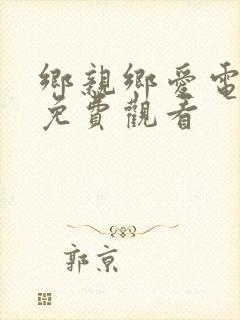 鄉親鄉愛電
免費觀看
郭京